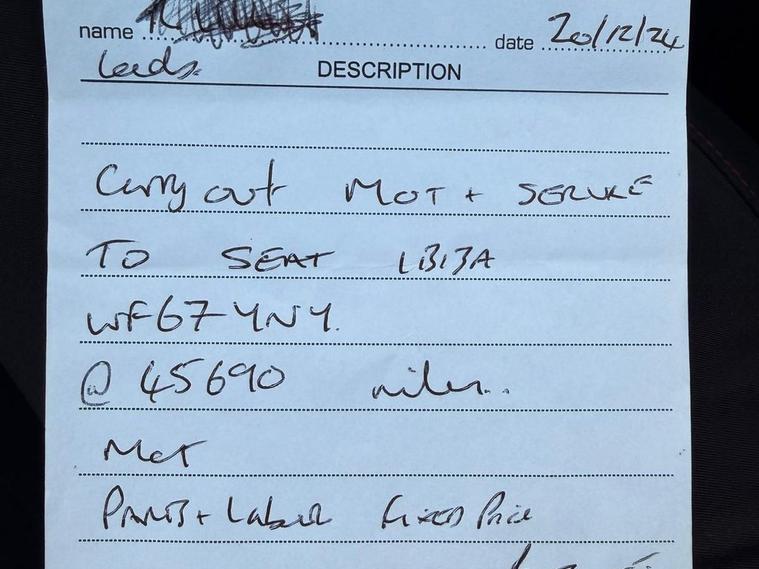 name date 20/12/24
Leeds. DESCRIPTION
Carry out MOT + SERVICE
TO SEAT IBIZA
WF67 YNY.
@ 45690 miles..
Mot
PARTS + Labour Fixed Price